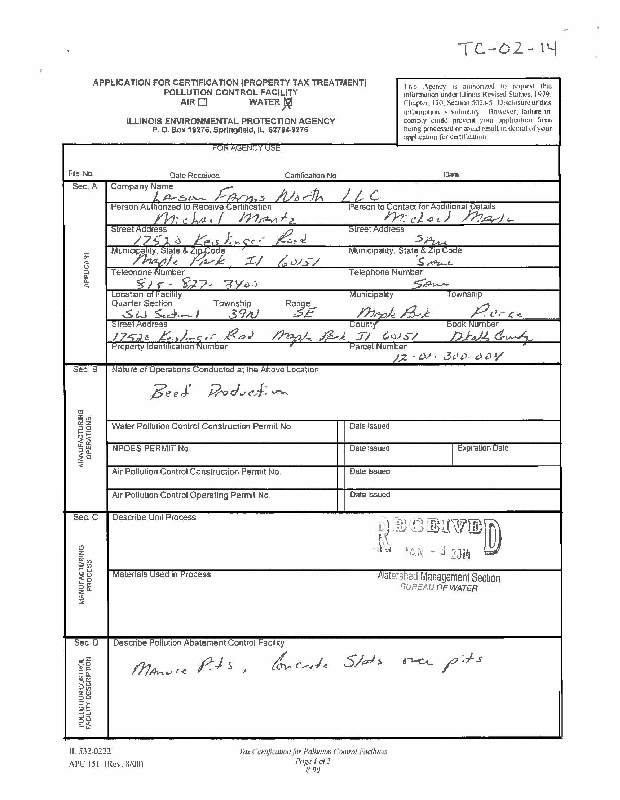 TC-02-14
APPLICATION FOR CERTIFICATION (PROPERTY TAX TREATMENT)
POLLUTION CONTROL FACILITY
AIR WATER
ILLINOIS ENVIRONMENTAL PROTECTION AGENCY
P. O. Box 19276, Springfield, IL 62794-9276
This Agency is authorized to request this
information under Illinois Revised Statutes, 1979,
Chapter 120, Section 502a-5. Disclosure of this
information is voluntary. However, failure to
comply could prevent your application from
being processed or could result in denial of your
application for certification.
FOR AGENCY USE
File No. Date Received Certification No. Date
Sec. A Company Name
Larson Farms North LLC
Person Authorized to Receive Certification Person to Contact for Additional Details
Michael Martz Michael Martz
Street Address Street Address
17520 Keslinger Road Same
Municipality, State & Zip Code Municipality, State & Zip Code
Maple Park, Il 60151 Same
Telephone Number Telephone Number
815-827-3400 Same
Location of Facility Municipality Township
Quarter Section Township Range
SW Section 1 39N 5E Maple Park Pierce
Street Address County Book Number
17520 Keslinger Road Maple Park Il 60151 Dekalb County
Property Identification Number Parcel Number
12-01-300-004
APPLICANT
Sec. B Nature of Operations Conducted at the Above Location
Beef Production
MANUFACTURING OPERATIONS
Water Pollution Control Construction Permit No. Date Issued
NPDES PERMIT No. Date Issued Expiration Date
Air Pollution Control Construction Permit No. Date Issued
Air Pollution Control Operating Permit No. Date Issued
Sec. C Describe Unit Process
RECEIVED
JAN - 2014
Materials Used in Process
Watershed Management Section
BUREAU OF WATER
MANUFACTURING PROCESS
Sec. D Describe Pollution Abatement Control Facility
Manure Pits, Concrete Slats over pits
POLLUTION CONTROL FACILITY DESCRIPTION
IL 532-0222 Tax Certification for Pollution Control Facilities
APC 151 (Rev. 8/00) Page 1 of 2